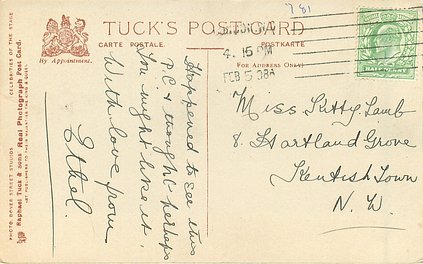 781
TUCK'S POST CARD
CARTE POSTALE.
POSTKARTE
By Appointment.
(FOR ADDRESS ONLY.)
4. 15 PM
FEB 5 08
HALFPENNY
Happened to see this
PC & thought perhaps
You might like it.
With love from
Ethel.
Miss Kitty Lamb
8. Hartland Grove
Kentish Town
N. W.
CELEBRITIES OF THE STAGE
RAPHAEL TUCK & SONS' Real Photograph Post Card.
PHOTO BOVER STREET STUDIOS